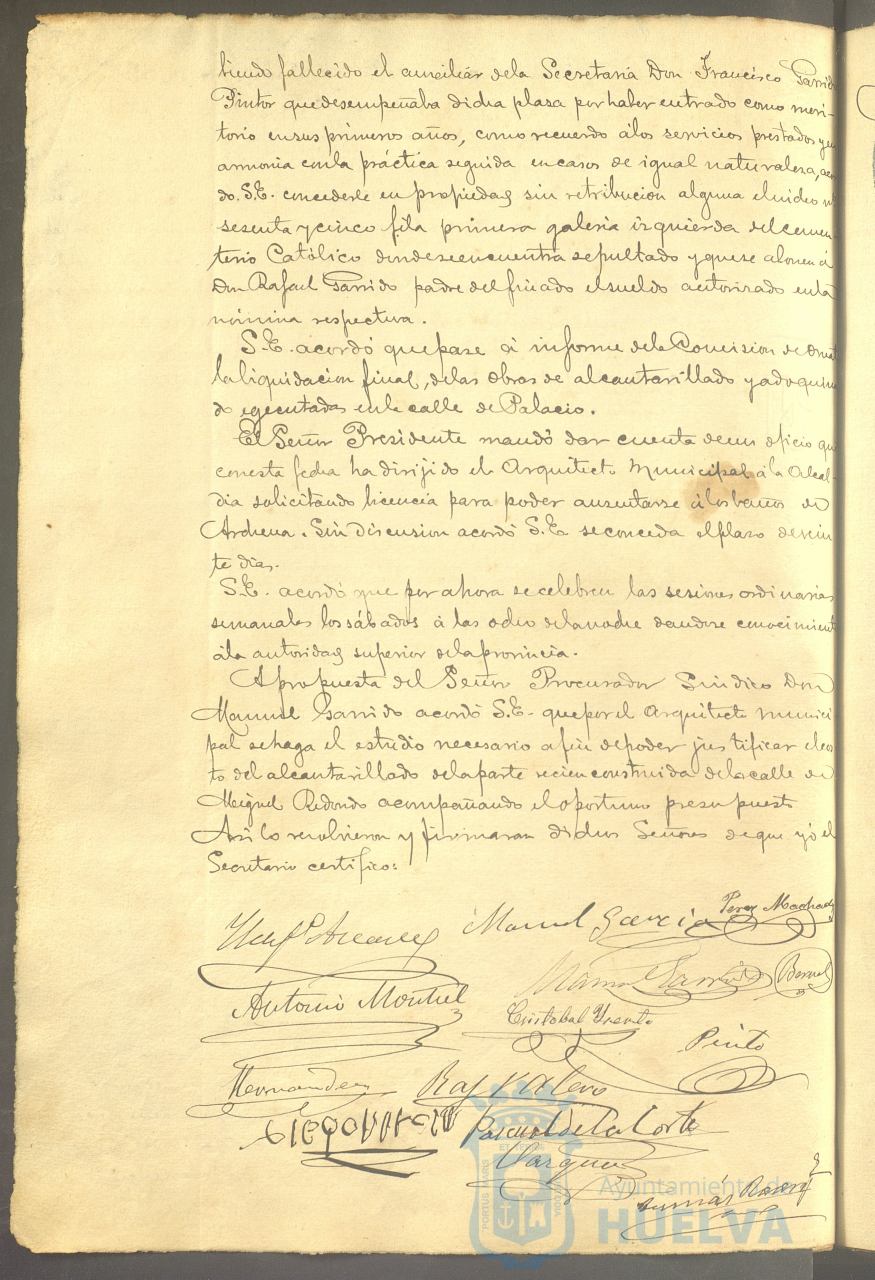 biendo fallecido el auxiliar dela Secretaría Don Francisco Garrido
Pintor que desempeñaba dicha plaza por haber entrado como meri-
torio en sus primeros años, como recuerdo álos servicios prestados y en
armonia con la práctica seguida en casos de igual naturaleza, acor
dó S.E. concederle en propiedad sin retribucion alguna el nicho
sesenta y cinco fila primera galeria izquierda del cemen
terio Católico donde se encuentra sepultado y que se abone á
Don Rafael Garrido padre del finado el sueldo autorizado en la
nómina respectiva.
S.E. acordó que pase á informe dela Comision de Ornat
la liquidacion final, delas obras de alcantarillado y adoquina
do egecutadas en la calle de Palacio.
El Señor Presidente mandó dar cuenta de un oficio que
con esta fecha ha dirijido el Arquitecto Municipal á la Alcal-
dia solicitando licencia para poder ausentarse á los baños de
Archena. Sin discusion acordó S.E. se conceda el plazo de vein
te dias.
S.E. acordó que por ahora se celebren las sesiones ordinarias
semanales los sábados á las ocho dela noche dandose conocimient
á la autoridad superior dela provincia.
A propuesta del Señor Procurador Sindico Don
Manuel Garrido acordó S.E. que por el Arquitecto munici
pal se haga el estudio necesario a fin de poder justificar el cos
to del alcantarillado dela parte recien construida dela calle de
Miguel Redondo acompañando el oportuno presupuesto
Asi lo resolvieron y firmaran dichos Señores de que yó el
Secretario certifico:
Manuel Garcia Perez Machado
Manuel Garrido Bernal
Antonio Montiel
Cristobal
Pinto
Hernandez Raf Valero
Pascual de la Corte
Vazquez
PORTUS MARIS
Ayuntamiento de
HUELVA